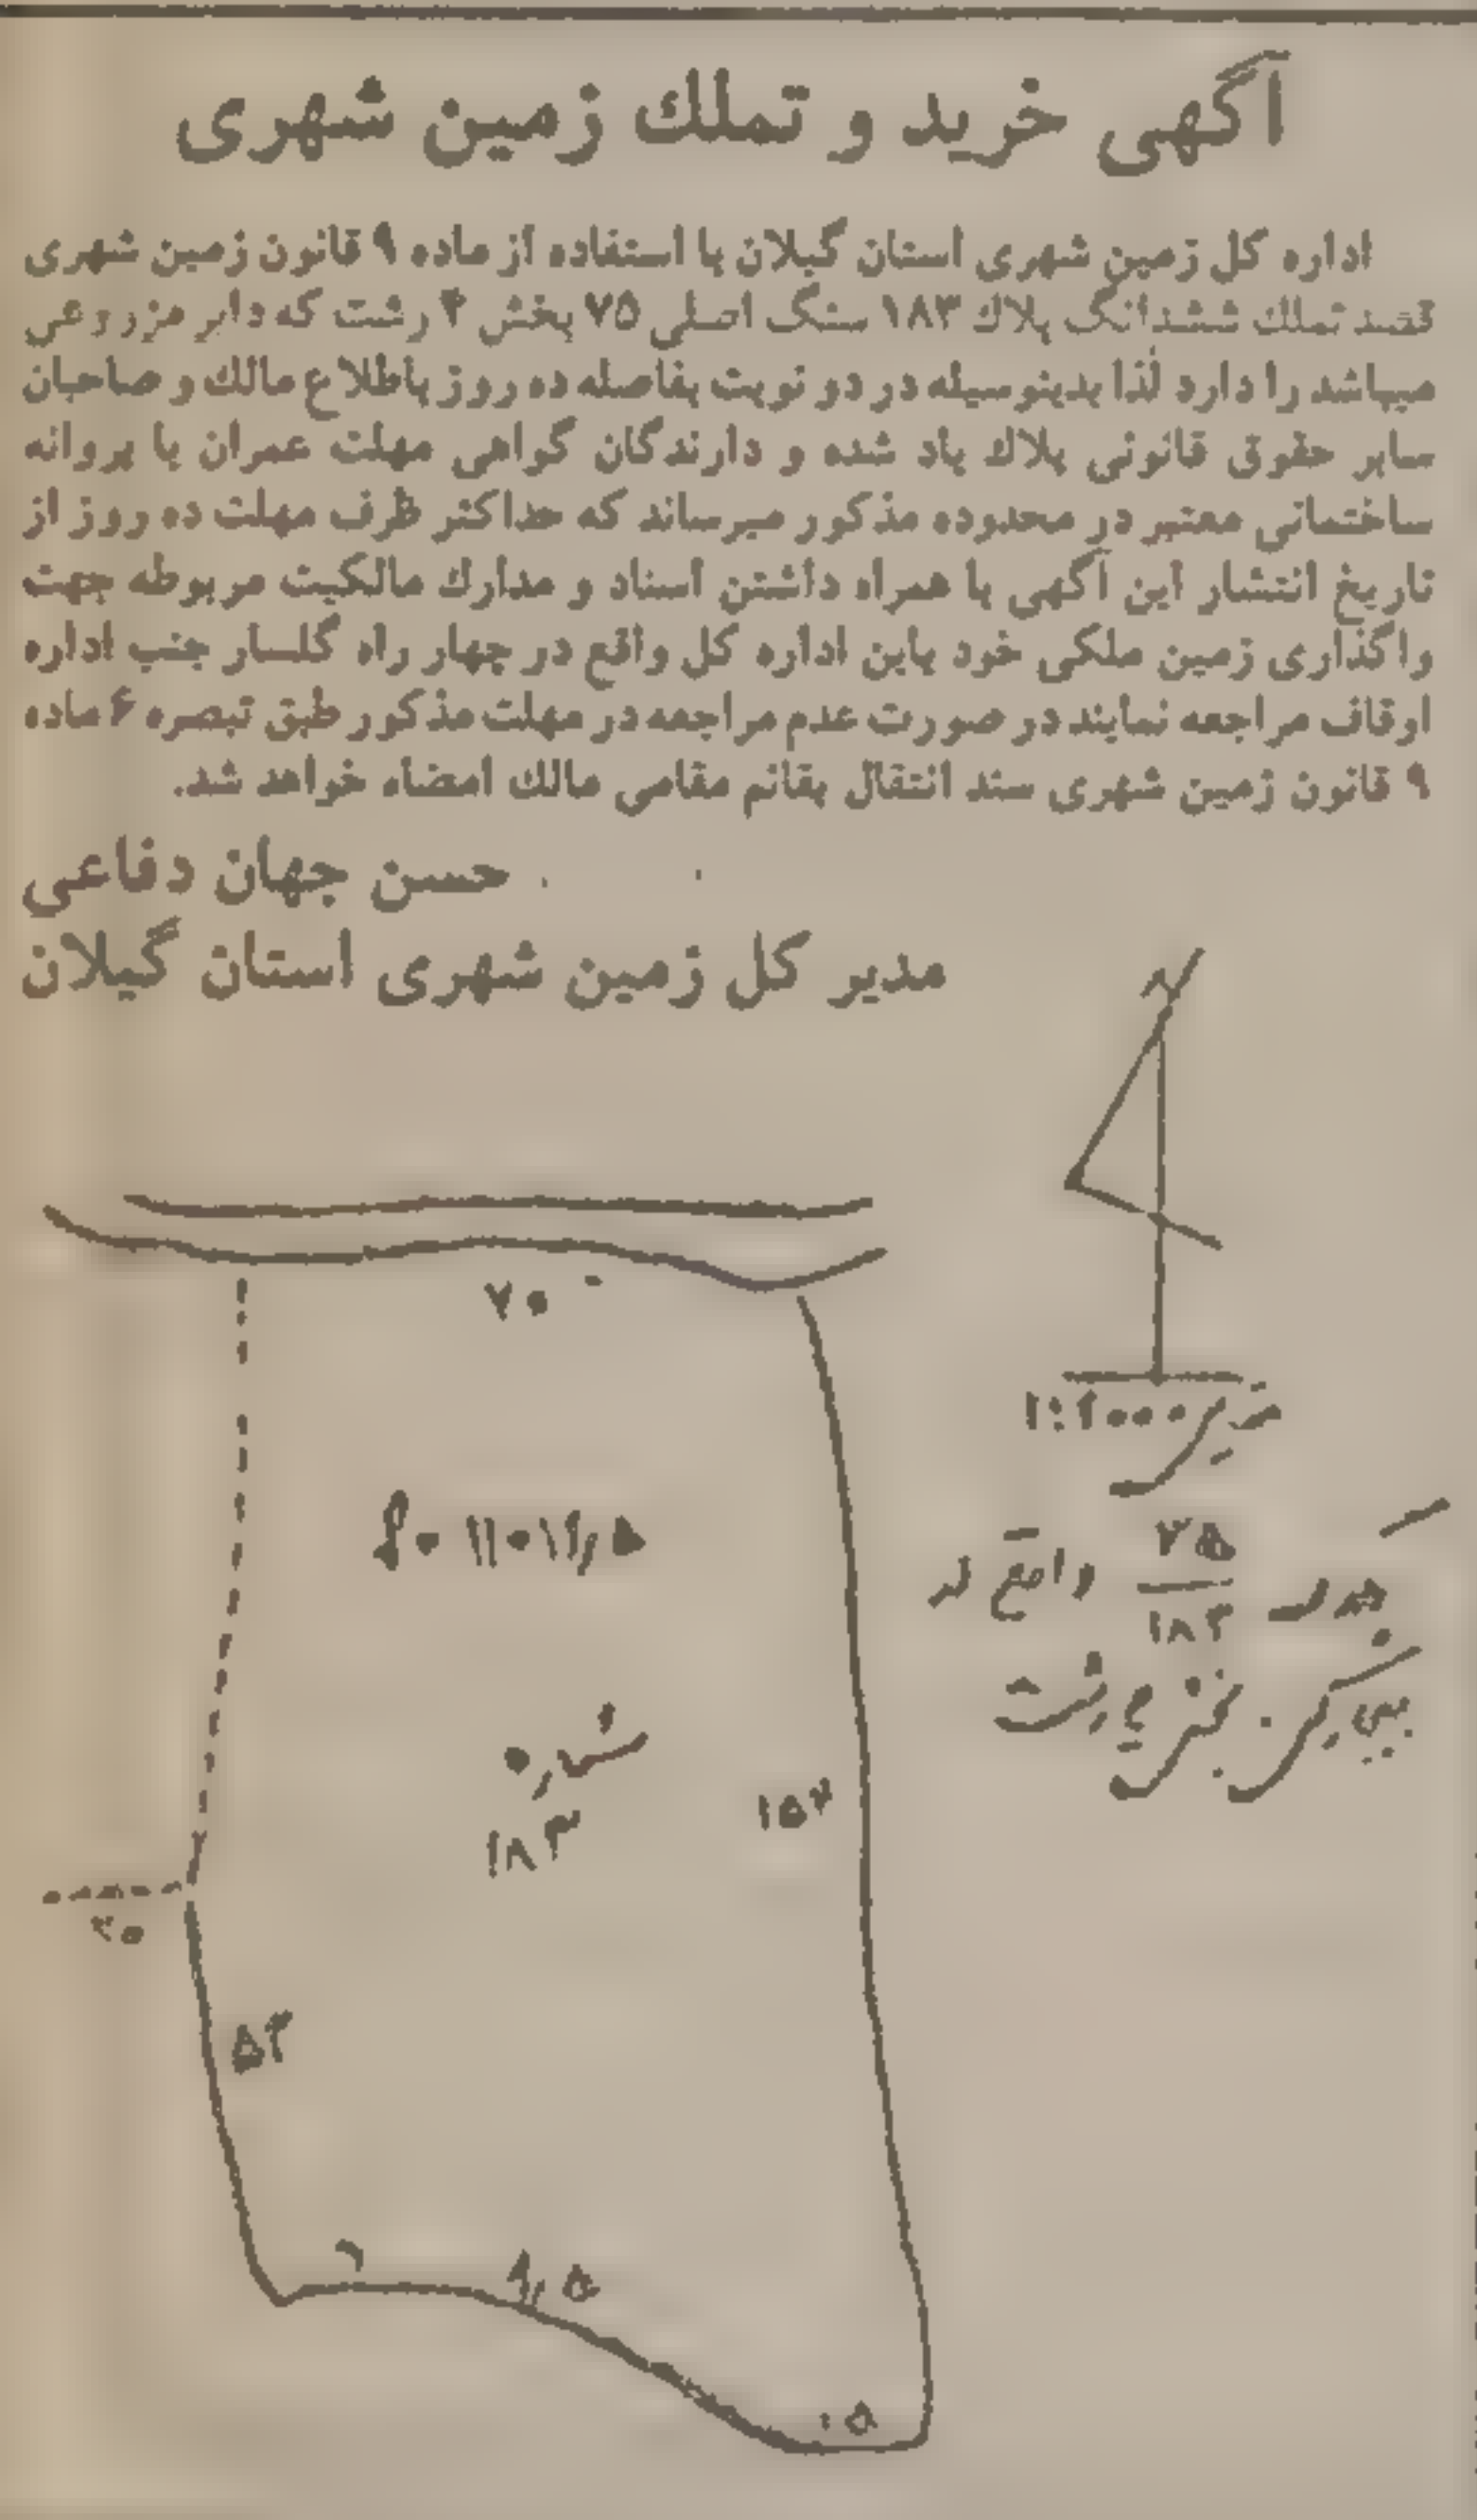 آگهی خرید و تملك زمین شهری
اداره کل زمین شهری استان گیلان با استفاده از ماده ۹ قانون زمین شهری
قصد تملك ششدانگ پلاك ۱۸۳ سنگ اصلی ۷۵ بخش ۴ رشت که دایر مزروعی
میباشد را دارد لذا بدینوسیله در دو نوبت بفاصله ده روز باطلاع مالك و صاحبان
سایر حقوق قانونی پلاك یاد شده و دارندگان گواهی مهلت عمران یا پروانه
ساختمانی معتبر در محدوده مذکور میرساند که حداکثر ظرف مهلت ده روز از
تاریخ انتشار این آگهی با همراه داشتن اسناد و مدارك مالکیت مربوطه جهت
واگذاری زمین ملکی خود باین اداره کل واقع در چهار راه گلسار جنب اداره
اوقاف مراجعه نمایند در صورت عدم مراجعه در مهلت مذکور طبق تبصره ۶ ماده
۹ قانون زمین شهری سند انتقال بقائم مقامی مالك امضاء خواهد شد.
حسن جهان دفاعی
مدیر کل زمین شهری استان گیلان
۷۰
۷۵
۱۸۳
واقع در
رشت
شماره
۱۸۳
۱۵۲
۵۳
۵